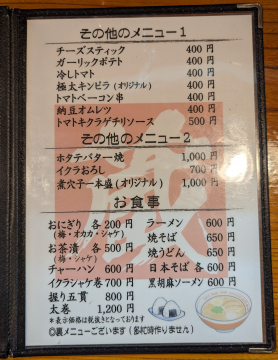 その他のメニュー1
チーズスティック 400 円
ガーリックポテト 400 円
冷しトマト 400 円
極太キンピラ (オリジナル) 400 円
トマトベーコン串 400 円
納豆オムレツ 400 円
トマトキクラゲチリソース 500 円
その他のメニュー2
ホタテバター焼 1,000 円
イクラおろし 700 円
煮穴子一本盛 (オリジナル) 1,000 円
お食事
おにぎり 各 200 円
(梅・オカカ・シャケ)
お茶漬 各 500 円
(梅・シャケ)
チャーハン 600 円
イクラシャケ巻 700 円
握り五貫 800 円
太巻 1,200 円
ラーメン 600 円
焼そば 650 円
焼うどん 650 円
日本そば 各 600 円
黒胡麻ソーメン 600 円
*表示価格は税抜きとなっております
◎裏メニューございます (多忙時作りません)